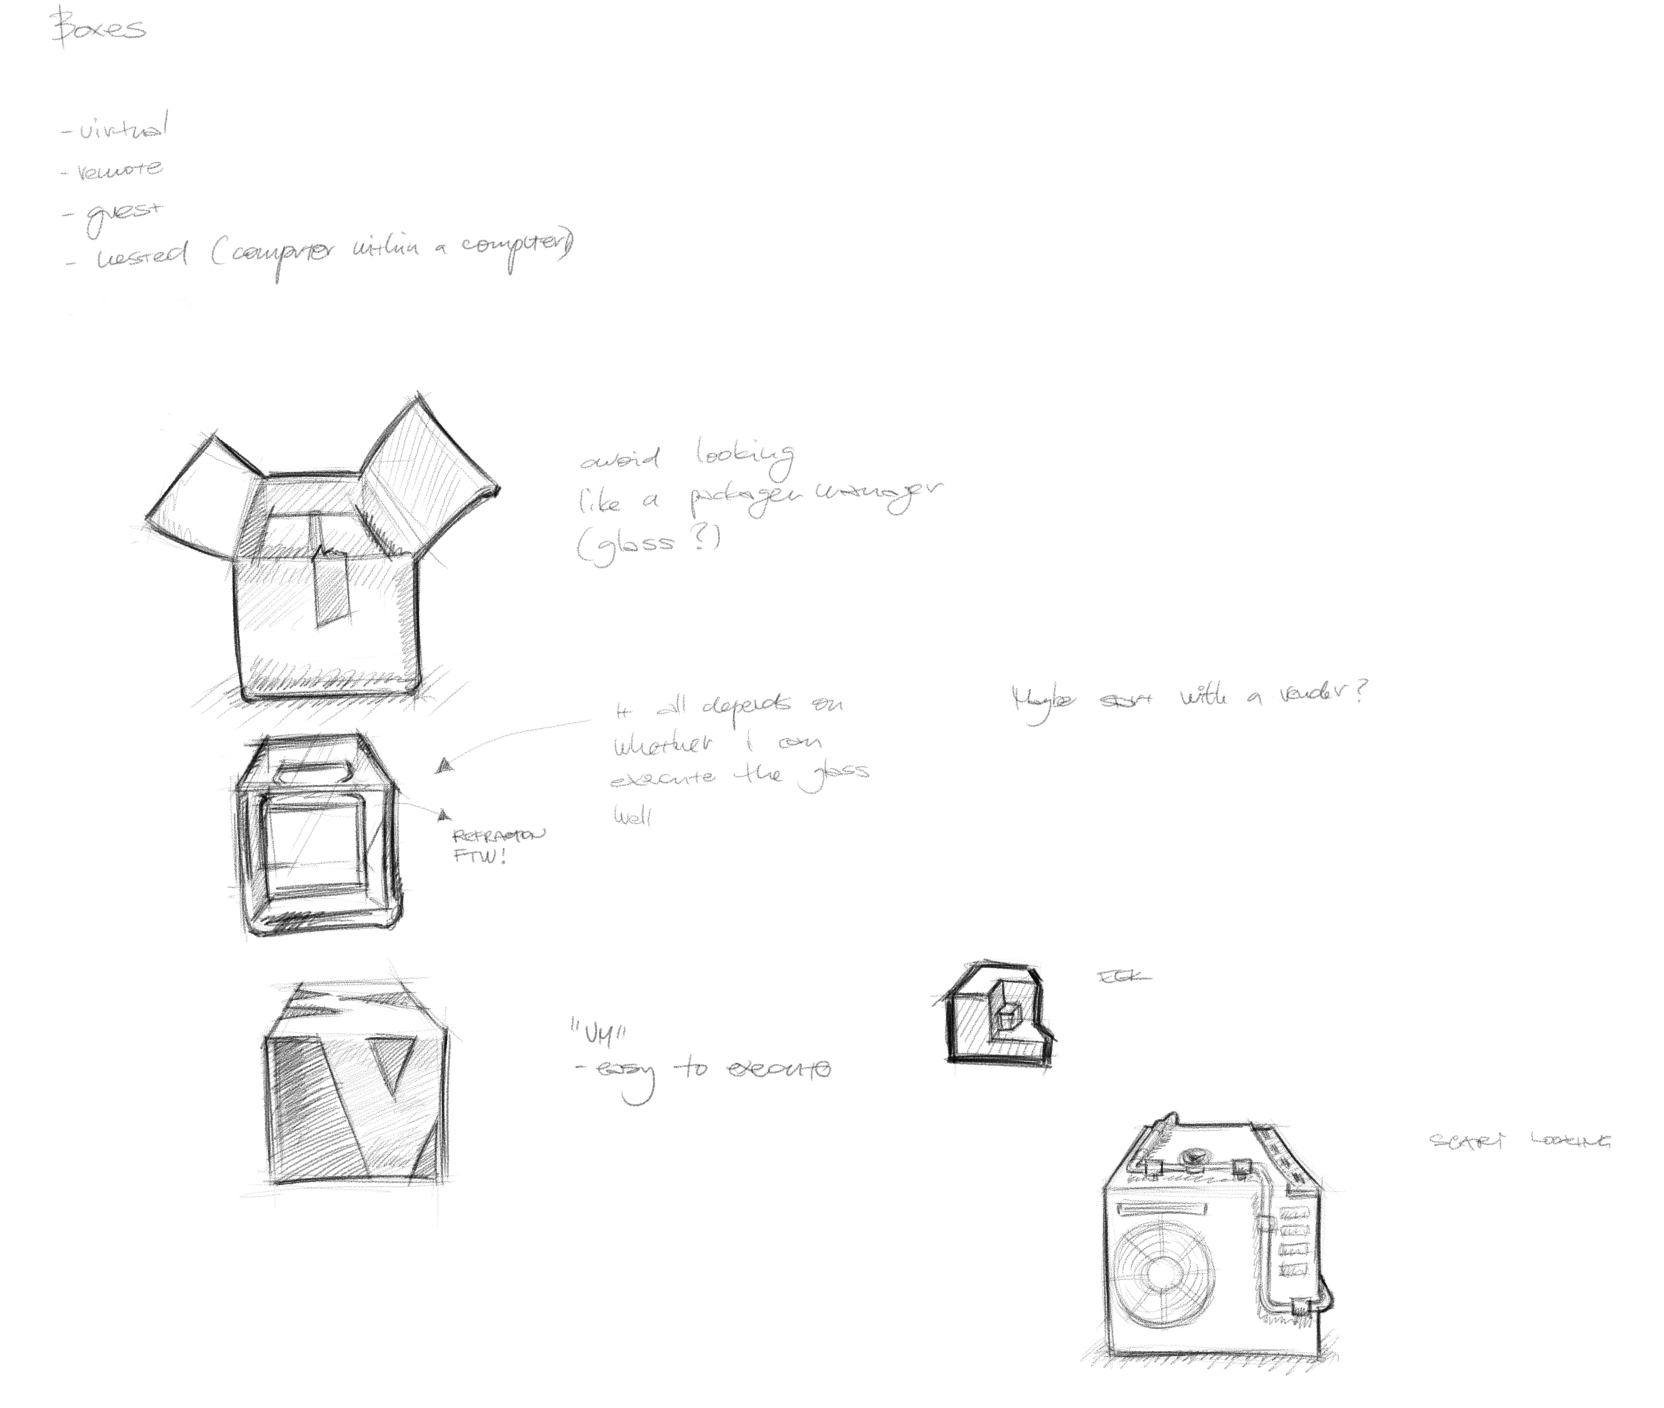 Boxes
- virtual
- remote
- guest
- nested (computer within a computer)
avoid looking
like a packagen manager
(glass?)
It all depends on
whether I can
execute the glass
well
Maybe start with a render?
REFRACTION
FTW!
"VM"
- easy to execute
EEK
SCARY LOOKING